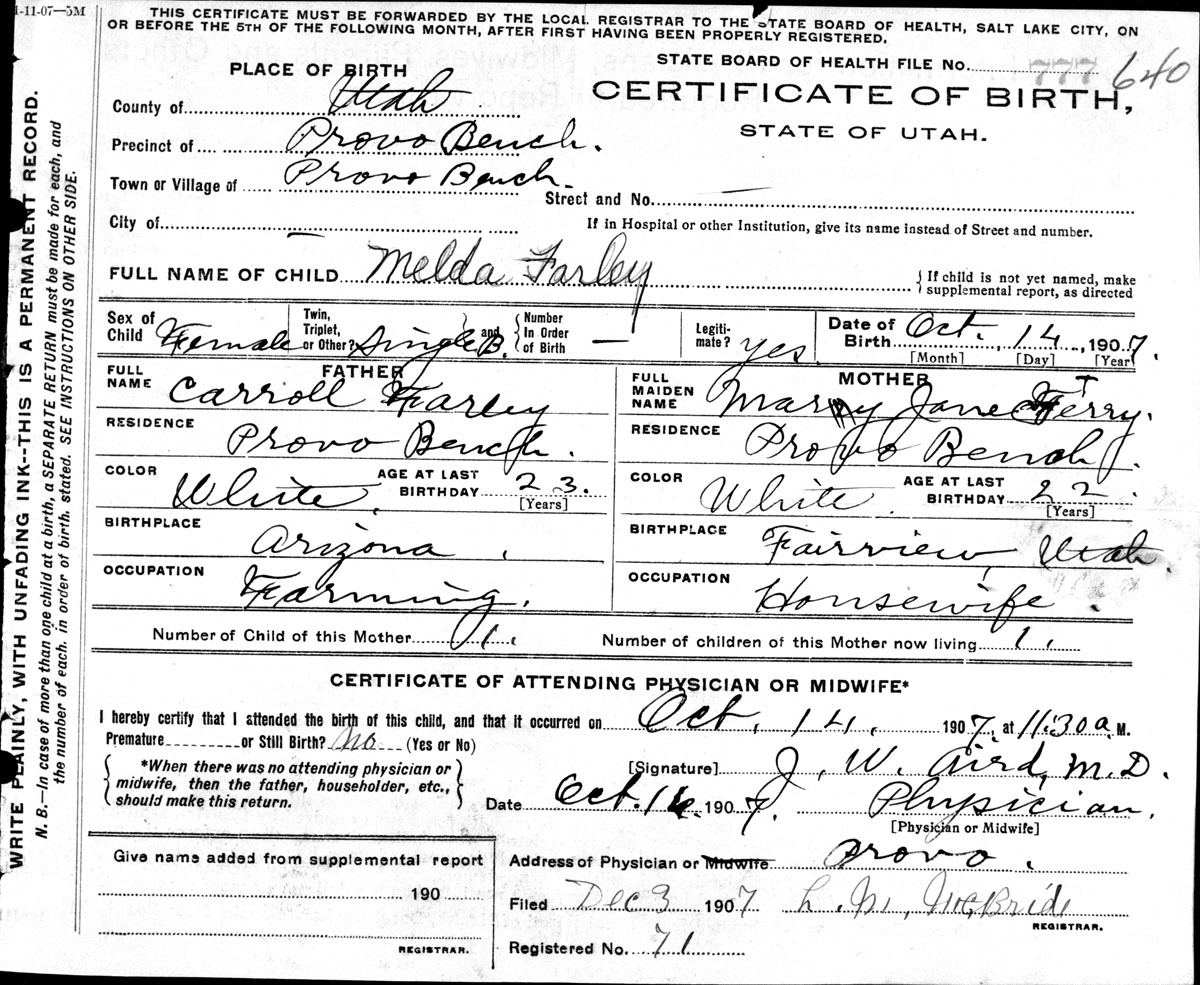 1-11-07—5M
THIS CERTIFICATE MUST BE FORWARDED BY THE LOCAL REGISTRAR TO THE STATE BOARD OF HEALTH, SALT LAKE CITY, ON
OR BEFORE THE 5TH OF THE FOLLOWING MONTH, AFTER FIRST HAVING BEEN PROPERLY REGISTERED.
WRITE PLAINLY, WITH UNFADING INK--THIS IS A PERMANENT RECORD.
N. B.—In case of more than one child at a birth, a SEPARATE RETURN must be made for each, and
the number of each, in order of birth, stated. SEE INSTRUCTIONS ON OTHER SIDE.
STATE BOARD OF HEALTH FILE NO. 777 640
PLACE OF BIRTH
CERTIFICATE OF BIRTH,
STATE OF UTAH.
County of Utah
Precinct of Provo Bench.
Town or Village of Provo Bench.
Street and No. —
City of —
If in Hospital or other Institution, give its name instead of Street and number.
FULL NAME OF CHILD Melda Farley
{If child is not yet named, make
supplemental report, as directed
Sex of Child Female
Twin, Triplet, or Other? Single B. and Number In Order of Birth —
Legiti-mate? yes
Date of Birth Oct. 14, 1907.
[Month] [Day] [Year]
FATHER
FULL NAME Carroll Farley
RESIDENCE Provo Bench.
COLOR White. AGE AT LAST BIRTHDAY 23. [Years]
BIRTHPLACE Arizona.
OCCUPATION Farming.
MOTHER
FULL MAIDEN NAME Mary Jane Terry.
RESIDENCE Provo Bench.
COLOR White. AGE AT LAST BIRTHDAY 22. [Years]
BIRTHPLACE Fairview, Utah.
OCCUPATION Housewife.
Number of Child of this Mother 1. Number of children of this Mother now living 1.
CERTIFICATE OF ATTENDING PHYSICIAN OR MIDWIFE*
I hereby certify that I attended the birth of this child, and that it occurred on Oct. 14, 1907, at 11:30 a. M.
Premature or Still Birth? No (Yes or No)
*When there was no attending physician or
midwife, then the father, householder, etc.,
should make this return.
[Signature] J. W. Aird, M.D.
Date Oct. 16. 1907. Physician.
[Physician or Midwife]
Give name added from supplemental report
190
REGISTRAR.
Address of Physician or Midwife Provo.
Filed Dec 3 1907 L. M. McBride
REGISTRAR.
Registered No. 71